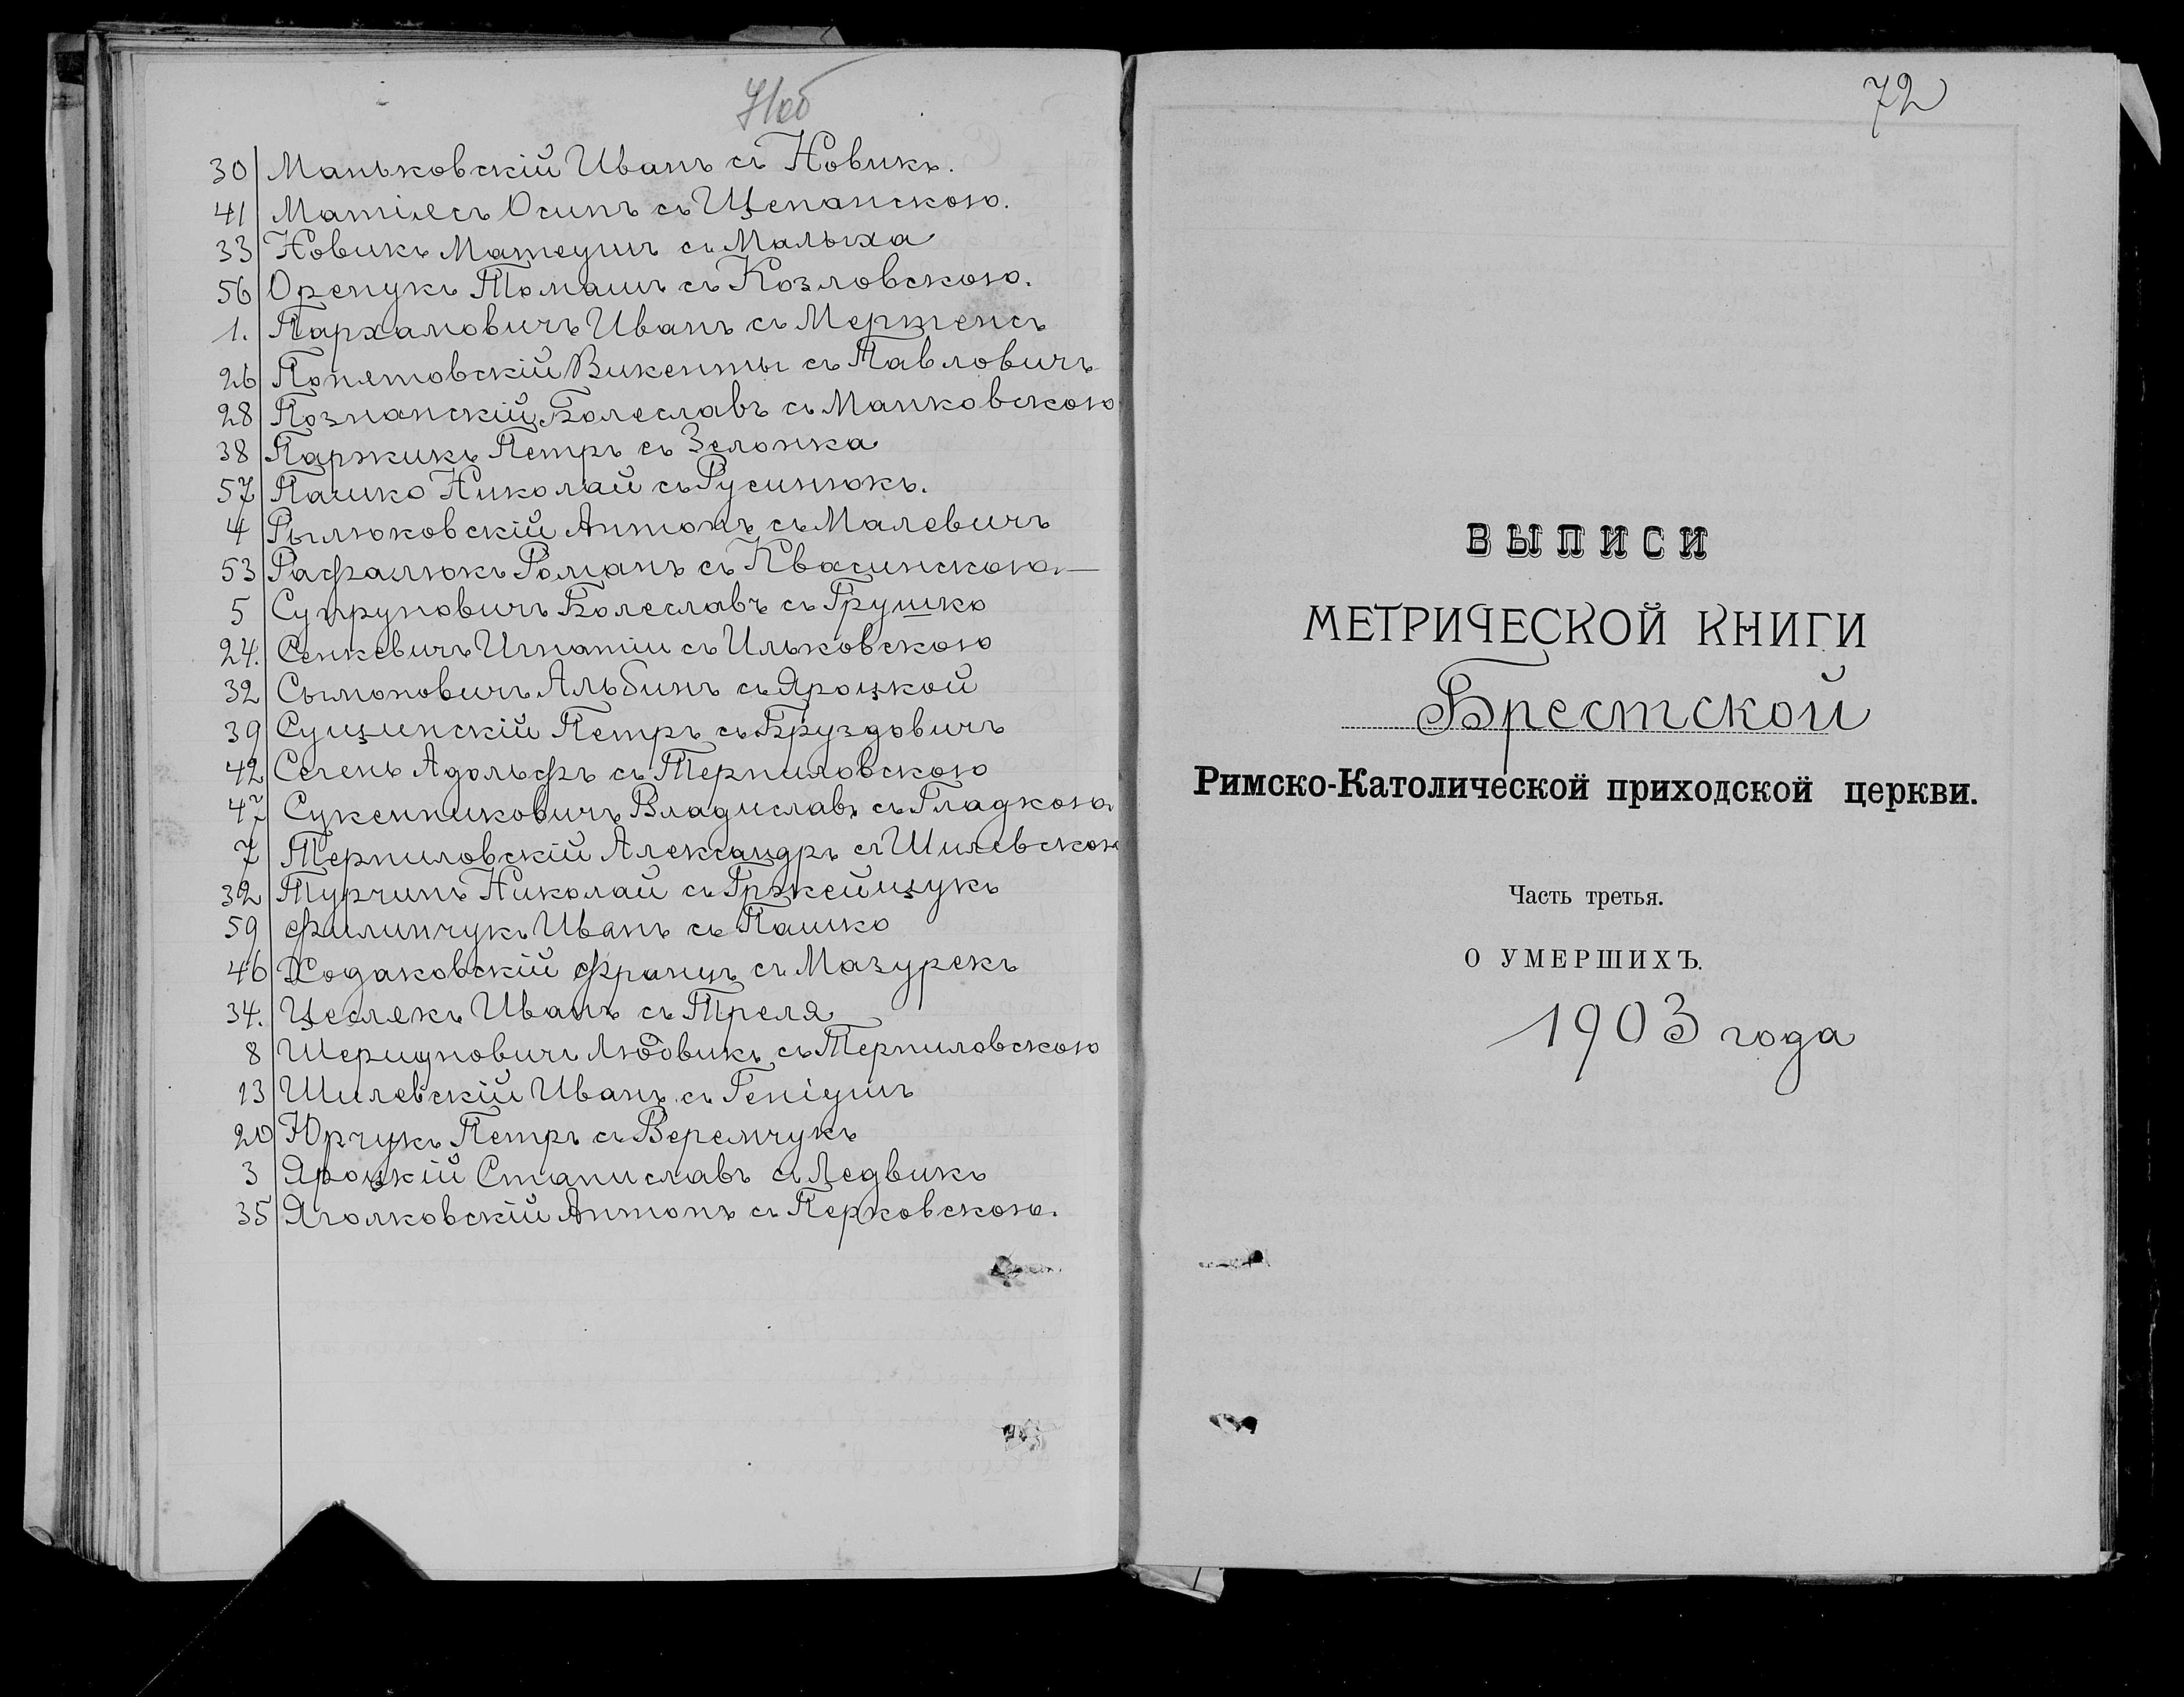 71об
30 Маньковскій Иванъ съ Новикъ.
41 Матіясъ Осипъ съ Щепанскою.
33 Новикъ Матеушъ съ Малыха
56 Орепукъ Томашъ съ Козловскою.
1. Пархамовичъ Иванъ съ Мертенсъ
26 Понятовскій Викенты съ Павловичъ
28 Познанскій Болеславъ съ Манковскою
38 Паржикъ Петръ съ Зелонка
57 Пашко Николай съ Русинюкъ.
4 Рылюковскій Антонъ съ Малевичъ
53 Рафалюкъ Романъ съ Квасинскою.—
5 Супруновичъ Болеславъ съ Грушко
24. Сенкевичъ Игнатіи съ Ильковскою
32 Сымоновичъ Альбинъ съ Яроцкой
39 Сущинскій Петръ съ Бруздовичъ
42 Сегень Адольфъ съ Терпиловскою
47 Сукенниковичъ Владиславъ съ Гладкою.
7 Терпиловскій Александръ съ Шилевскою
32 Турчинъ Николай съ Гржейщукъ
59 Филипчукъ Иванъ съ Пашко
46 Ходаковскій Францъ съ Мазурекъ
34. Цеслякъ Иванъ съ Треля
8 Шерищновичъ Людвикъ съ Терпиловскою
13 Шилевскій Иванъ съ Геніушъ
20 Юрчукъ Петръ съ Веремчукъ
3 Яроцкій Станиславъ съ Ледвикъ
35 Яголковскій Антонъ съ Перковскою.
72
ВЫПИСИ
МЕТРИЧЕСКОЙ КНИГИ
Брестской
Римско-Католической приходской церкви.
Часть третья.
О УМЕРШИХЪ.
1903 года